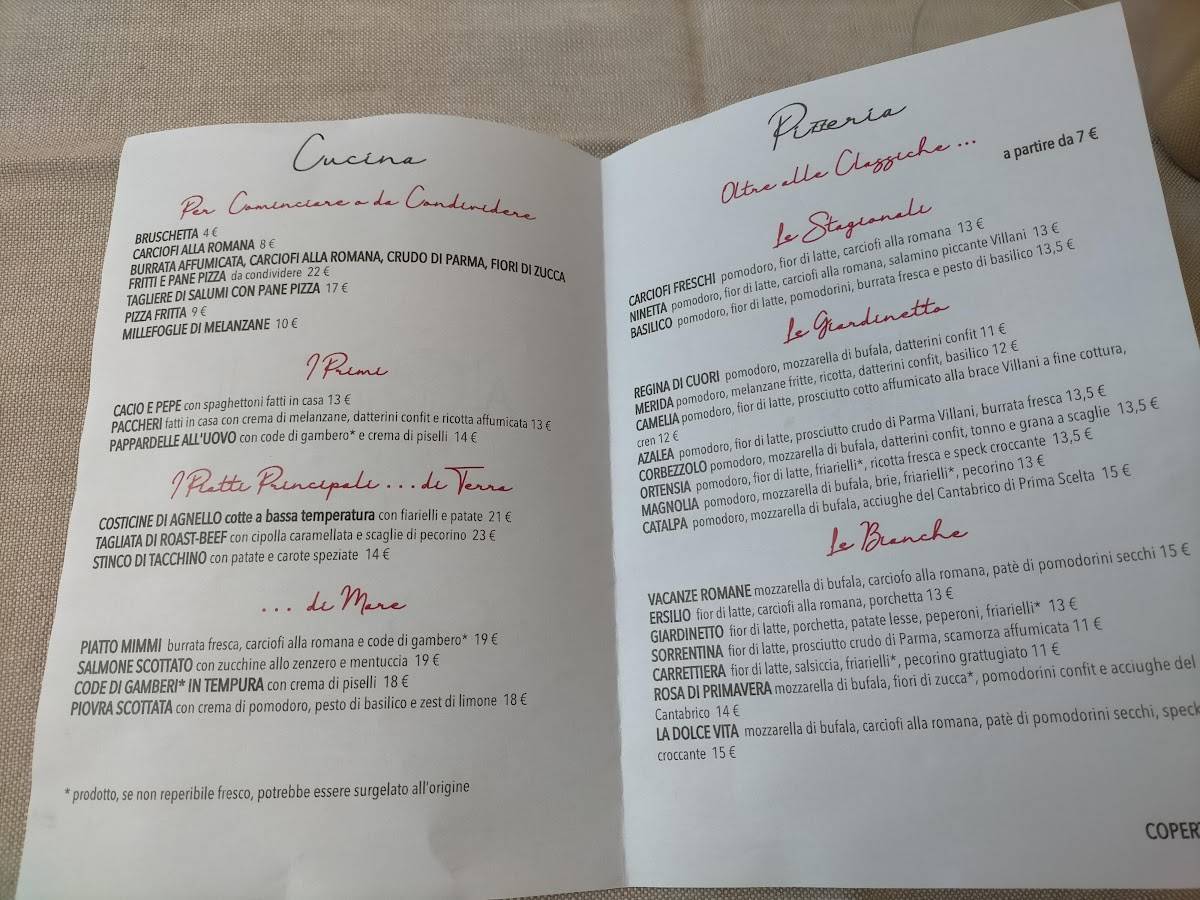 Cucina
Per Cominciare o da Condividere
BRUSCHETTA 4 €
CARCIOFI ALLA ROMANA 8 €
BURRATA AFFUMICATA, CARCIOFI ALLA ROMANA, CRUDO DI PARMA, FIORI DI ZUCCA
FRITTI E PANE PIZZA da condividere 22 €
TAGLIERE DI SALUMI CON PANE PIZZA 17 €
PIZZA FRITTA 9 €
MILLEFOGLIE DI MELANZANE 10 €
I Primi
CACIO E PEPE con spaghettoni fatti in casa 13 €
PACCHERI fatti in casa con crema di melanzane, datterini confit e ricotta affumicata 13 €
PAPPARDELLE ALL'UOVO con code di gambero* e crema di piselli 14 €
I Piatti Principali ... di Terra
COSTICINE DI AGNELLO cotte a bassa temperatura con fiarielli e patate 21 €
TAGLIATA DI ROAST-BEEF con cipolla caramellata e scaglie di pecorino 23 €
STINCO DI TACCHINO con patate e carote speziate 14 €
... di Mare
PIATTO MIMMI burrata fresca, carciofi alla romana e code di gambero* 19 €
SALMONE SCOTTATO con zucchine allo zenzero e mentuccia 19 €
CODE DI GAMBERI* IN TEMPURA con crema di piselli 18 €
PIOVRA SCOTTATA con crema di pomodoro, pesto di basilico e zest di limone 18 €
* prodotto, se non reperibile fresco, potrebbe essere surgelato all'origine
Pizzeria
Oltre alle Classiche ...
a partire da 7 €
Le Stagionali
CARCIOFI FRESCHI pomodoro, fior di latte, carciofi alla romana 13 €
NINETTA pomodoro, fior di latte, carciofi alla romana, salamino piccante Villani 13 €
BASILICO pomodoro, fior di latte, pomodorini, burrata fresca e pesto di basilico 13,5 €
Le Giardinetto
REGINA DI CUORI pomodoro, mozzarella di bufala, datterini confit 11 €
MERIDA pomodoro, melanzane fritte, ricotta, datterini confit, basilico 12 €
CAMELIA pomodoro, fior di latte, prosciutto cotto affumicato alla brace Villani a fine cottura,
cren 12 €
AZALEA pomodoro, fior di latte, prosciutto crudo di Parma Villani, burrata fresca 13,5 €
CORBEZZOLO pomodoro, mozzarella di bufala, datterini confit, tonno e grana a scaglie 13,5 €
ORTENSIA pomodoro, fior di latte, friarielli*, ricotta fresca e speck croccante 13,5 €
MAGNOLIA pomodoro, mozzarella di bufala, brie, friarielli*, pecorino 13 €
CATALPA pomodoro, mozzarella di bufala, acciughe del Cantabrico di Prima Scelta 15 €
Le Bianche
VACANZE ROMANE mozzarella di bufala, carciofo alla romana, patè di pomodorini secchi 15 €
ERSILIO fior di latte, carciofi alla romana, porchetta 13 €
GIARDINETTO fior di latte, porchetta, patate lesse, peperoni, friarielli* 13 €
SORRENTINA fior di latte, prosciutto crudo di Parma, scamorza affumicata 11 €
CARRETTIERA fior di latte, salsiccia, friarielli*, pecorino grattugiato 11 €
ROSA DI PRIMAVERA mozzarella di bufala, fiori di zucca*, pomodorini confit e acciughe del
Cantabrico 14 €
LA DOLCE VITA mozzarella di bufala, carciofi alla romana, patè di pomodorini secchi, speck
croccante 15 €
COPER